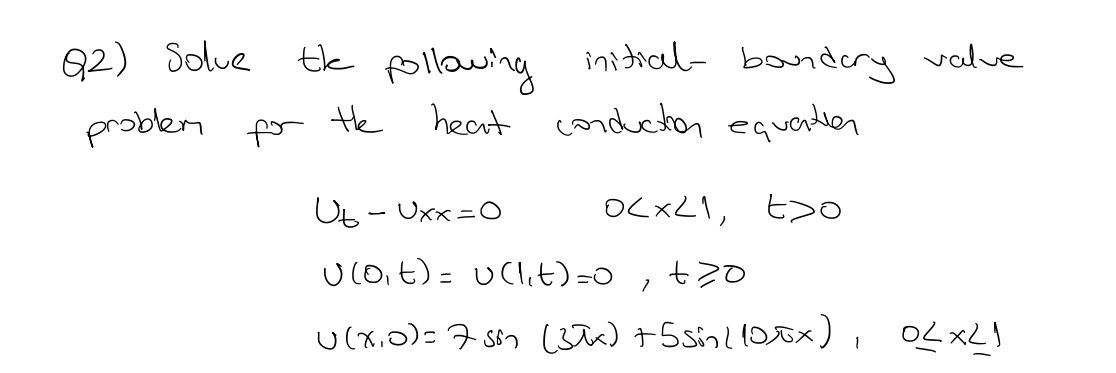 Q2) Solve the following initial- boundary value
problem for the heat conduction equation
Ut - Uxx = 0 0<x<1, t>0
U(0,t) = U(1,t)=0 , t≥0
U(x,0)= 7 sin (3πx) +5sin(10πx) , 0≤x≤1